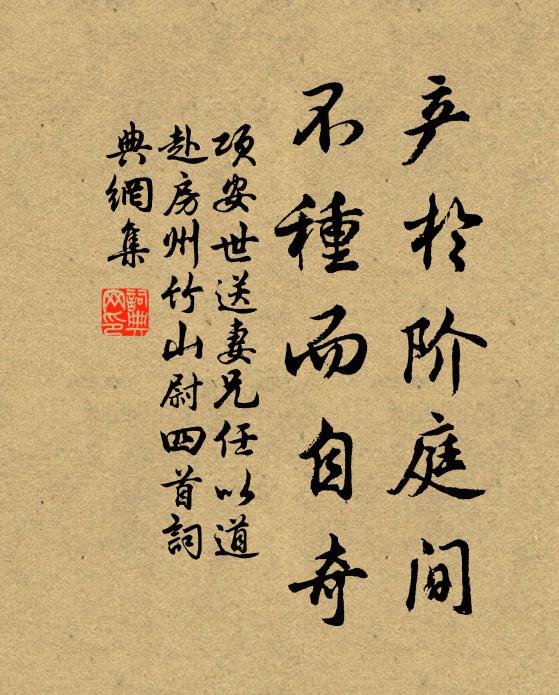 产於阶庭间
不種而自奇
项安世送妻兄任以道
赴房州竹山尉四首詞
典網集
詞典网印